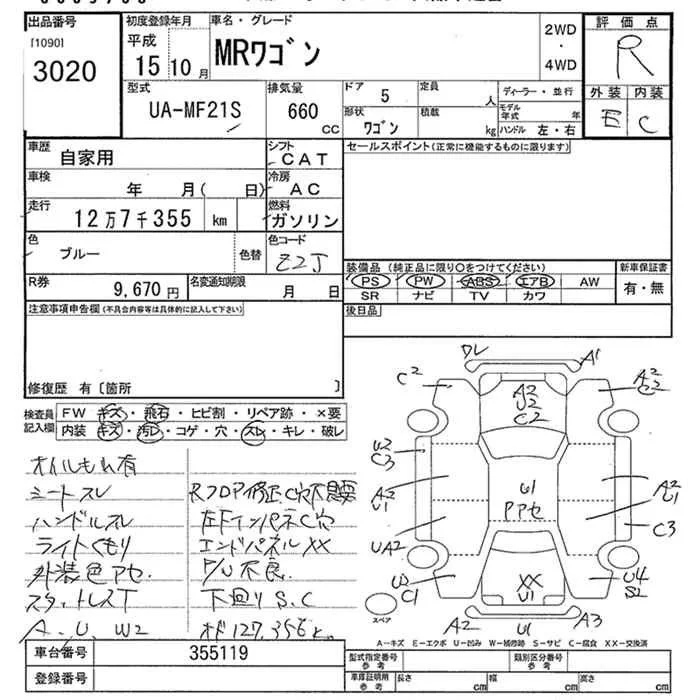 出品番号
[1090]
3020
初度登録年月
平成
15 10 月
車名・グレード
MRワゴン
2WD
・
4WD
評価点
R
外装 内装
E C
型式
UA-MF21S
排気量
660
CC
ドア 5
定員
人
ディーラー・並行
形状
ワゴン
積載
kg
モデル年式 年
ハンドル 左・右
車歴
自家用
シフト
CAT
セールスポイント(正常に機能するものに限ります)
車検
年 月( 日)
冷房
AC
走行
12万7千355 km
燃料
ガソリン
色
ブルー
色替
色コード
Z2J
装備品(純正品に限り○をつけてください)
新車保証書
PS PW ABS エアB AW
有・無
SR ナビ TV カワ
R券
9,670 円
名変通知期限
月 日
後日品
注意事項申告欄(不具合内容等は具体的に記入して下さい)
修復歴 有〔箇所 〕
検査員
記入欄
FW キズ・飛石・ヒビ割・リペア跡・×要
内装 キズ・汚レ・コゲ・穴・スレ・キレ・破レ
オイルもれ有
シートスレ
ハンドルスレ
ライトくもり
外装色アセ.
スタットレスT
A. U. W2
Rフロア修正C穴不要
左右インパネC穴
エンドパネルXX
P/W不良.
下回りS.C
オド127,356km
DL
C2
A1
A2
C2
A2
U2
C2
U2
C3
A2
U1
U1
Pアセ
A2
U1
C3
UA2
U2
C1
XX
U1
U4
S2
A2
U1
A3
スペア
A-キズ E-エクボ U-凹み W-補修跡 S-サビ C-腐食 XX-交換済
車台番号
355119
登録番号
型式指定番号
参考
類別区分番号
参考
車庫証明用
参考
長さ cm
幅 cm
高さ cm